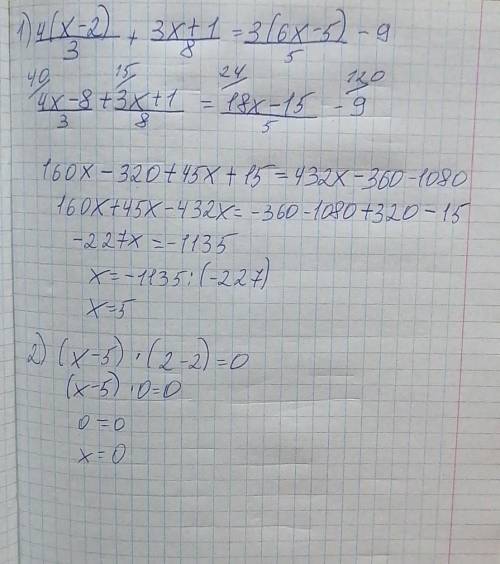 1) 4(x-2)/3 + 3x+1/8 = 3(6x-5)/5 - 9
40 15 24 120
4x-8/3 + 3x+1/8 = 18x-15/5 - 9
160x-320+45x+15=432x-360-1080
160x+45x-432x=-360-1080+320-15
-227x=-1135
x=-1135:(-227)
x=5
2) (x-5)·(2-2)=0
(x-5)·0=0
0=0
x=0